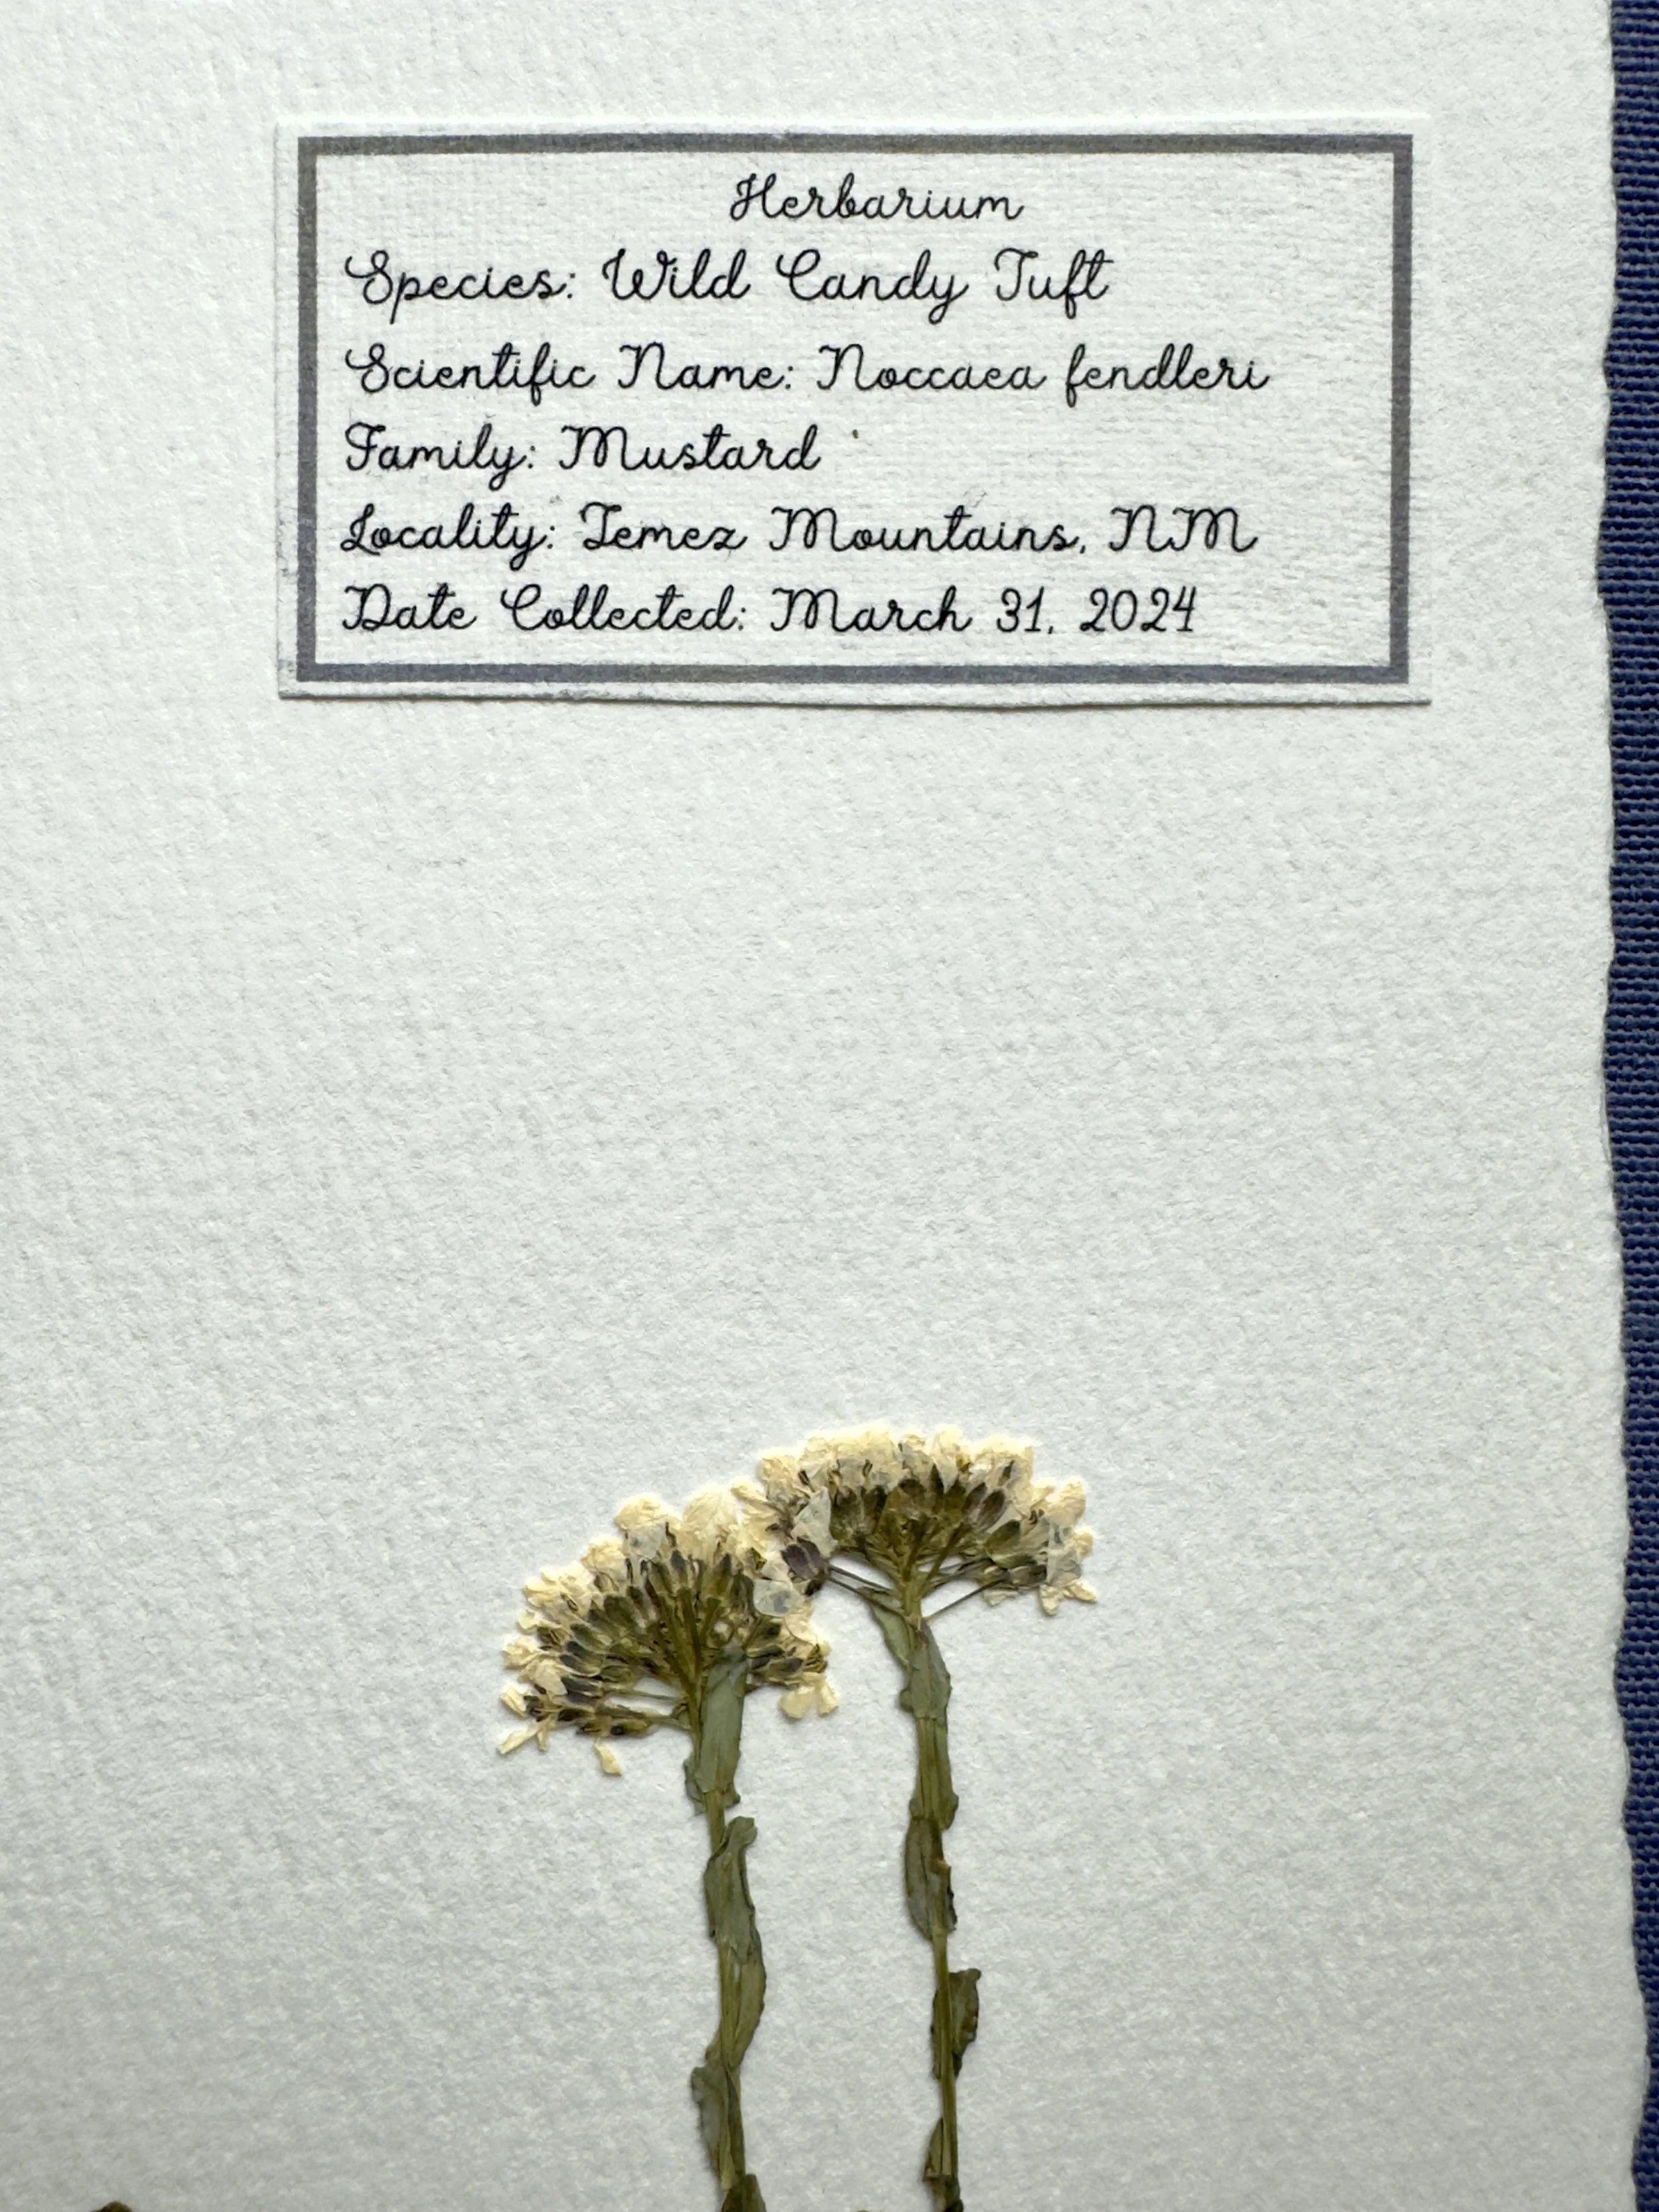 Herbarium
Species: Wild Candy Tuft
Scientific Name: Noccaea fendleri
Family: Mustard
Locality: Jemez Mountains, NM
Date Collected: March 31, 2024